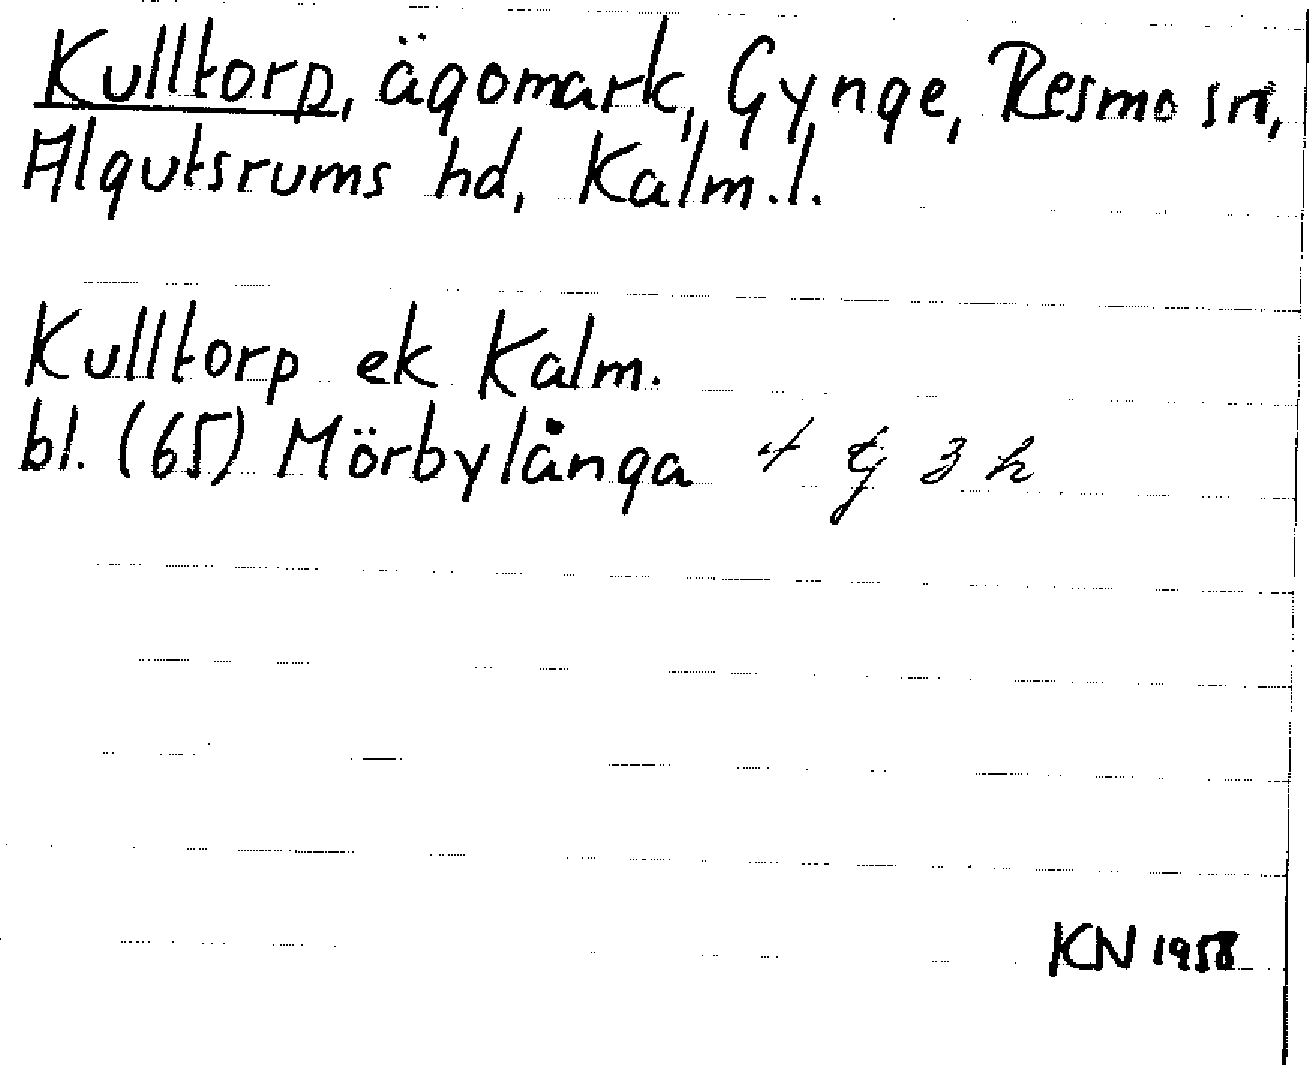 Kulltorp, ägomark, Gynge, Resmo sn,
Algutsrums hd, Kalm.l.
Kulltorp ek Kalm.
bl. (65) Mörbylånga 4 g 3 h
KN 1958